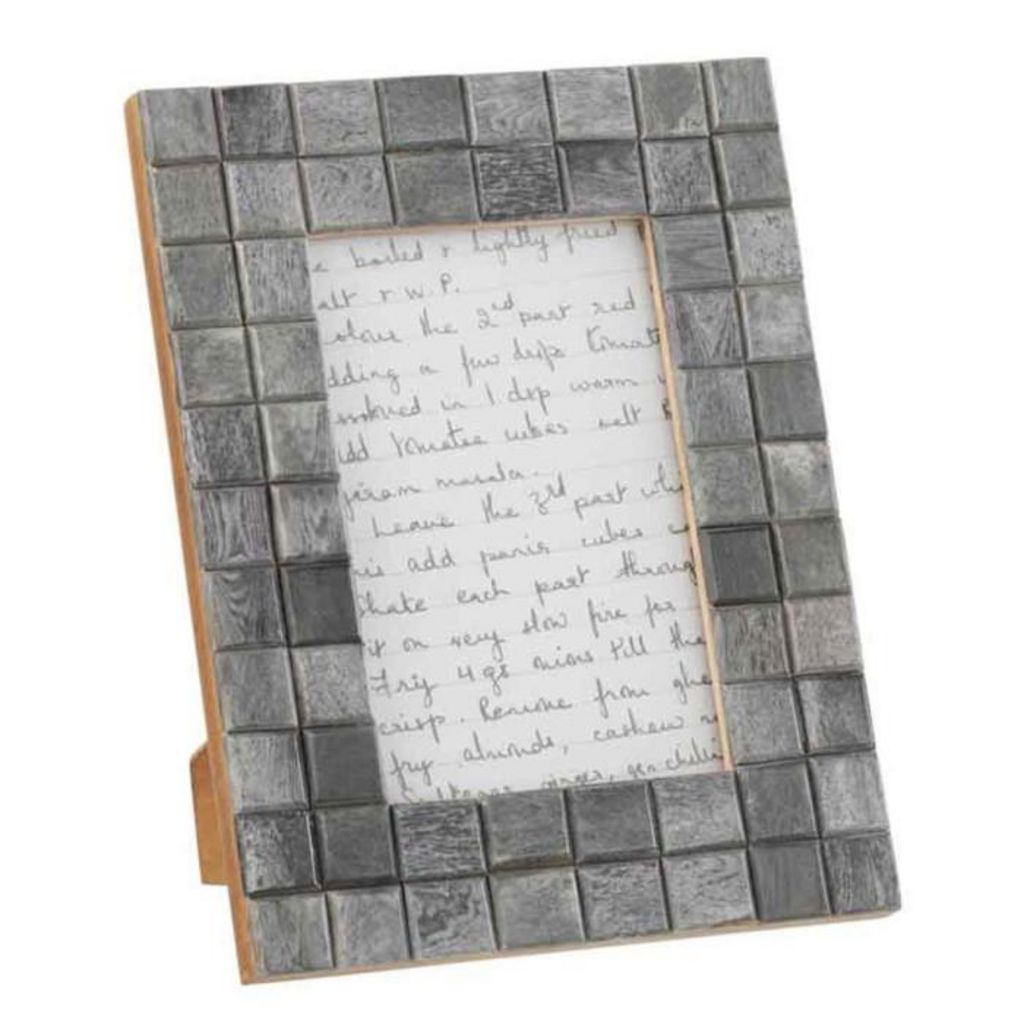 e boiled & lightly fried
alt & W.P.
olour the 2nd part red
dding a few drps tomat
ssolved in 1 dsp warm
dd tomatoe cubes salt
garam masala.
Leave the 3rd part whi
his add panir cubes
Shake each part throug
it on very slow fire for
Fry 4 gs onions till the
crisp. Remove from ghe
fry almonds, cashew n
ginger, gr. chilli